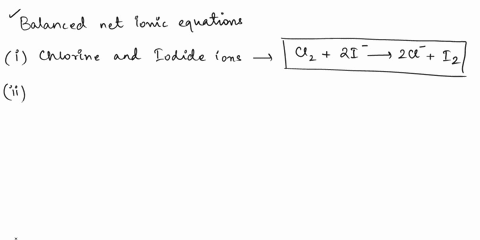 ✓Balanced net ionic equations
(i) Chlorine and Iodide ions → Cl₂ + 2I⁻ → 2Cl⁻ + I₂
(ii)